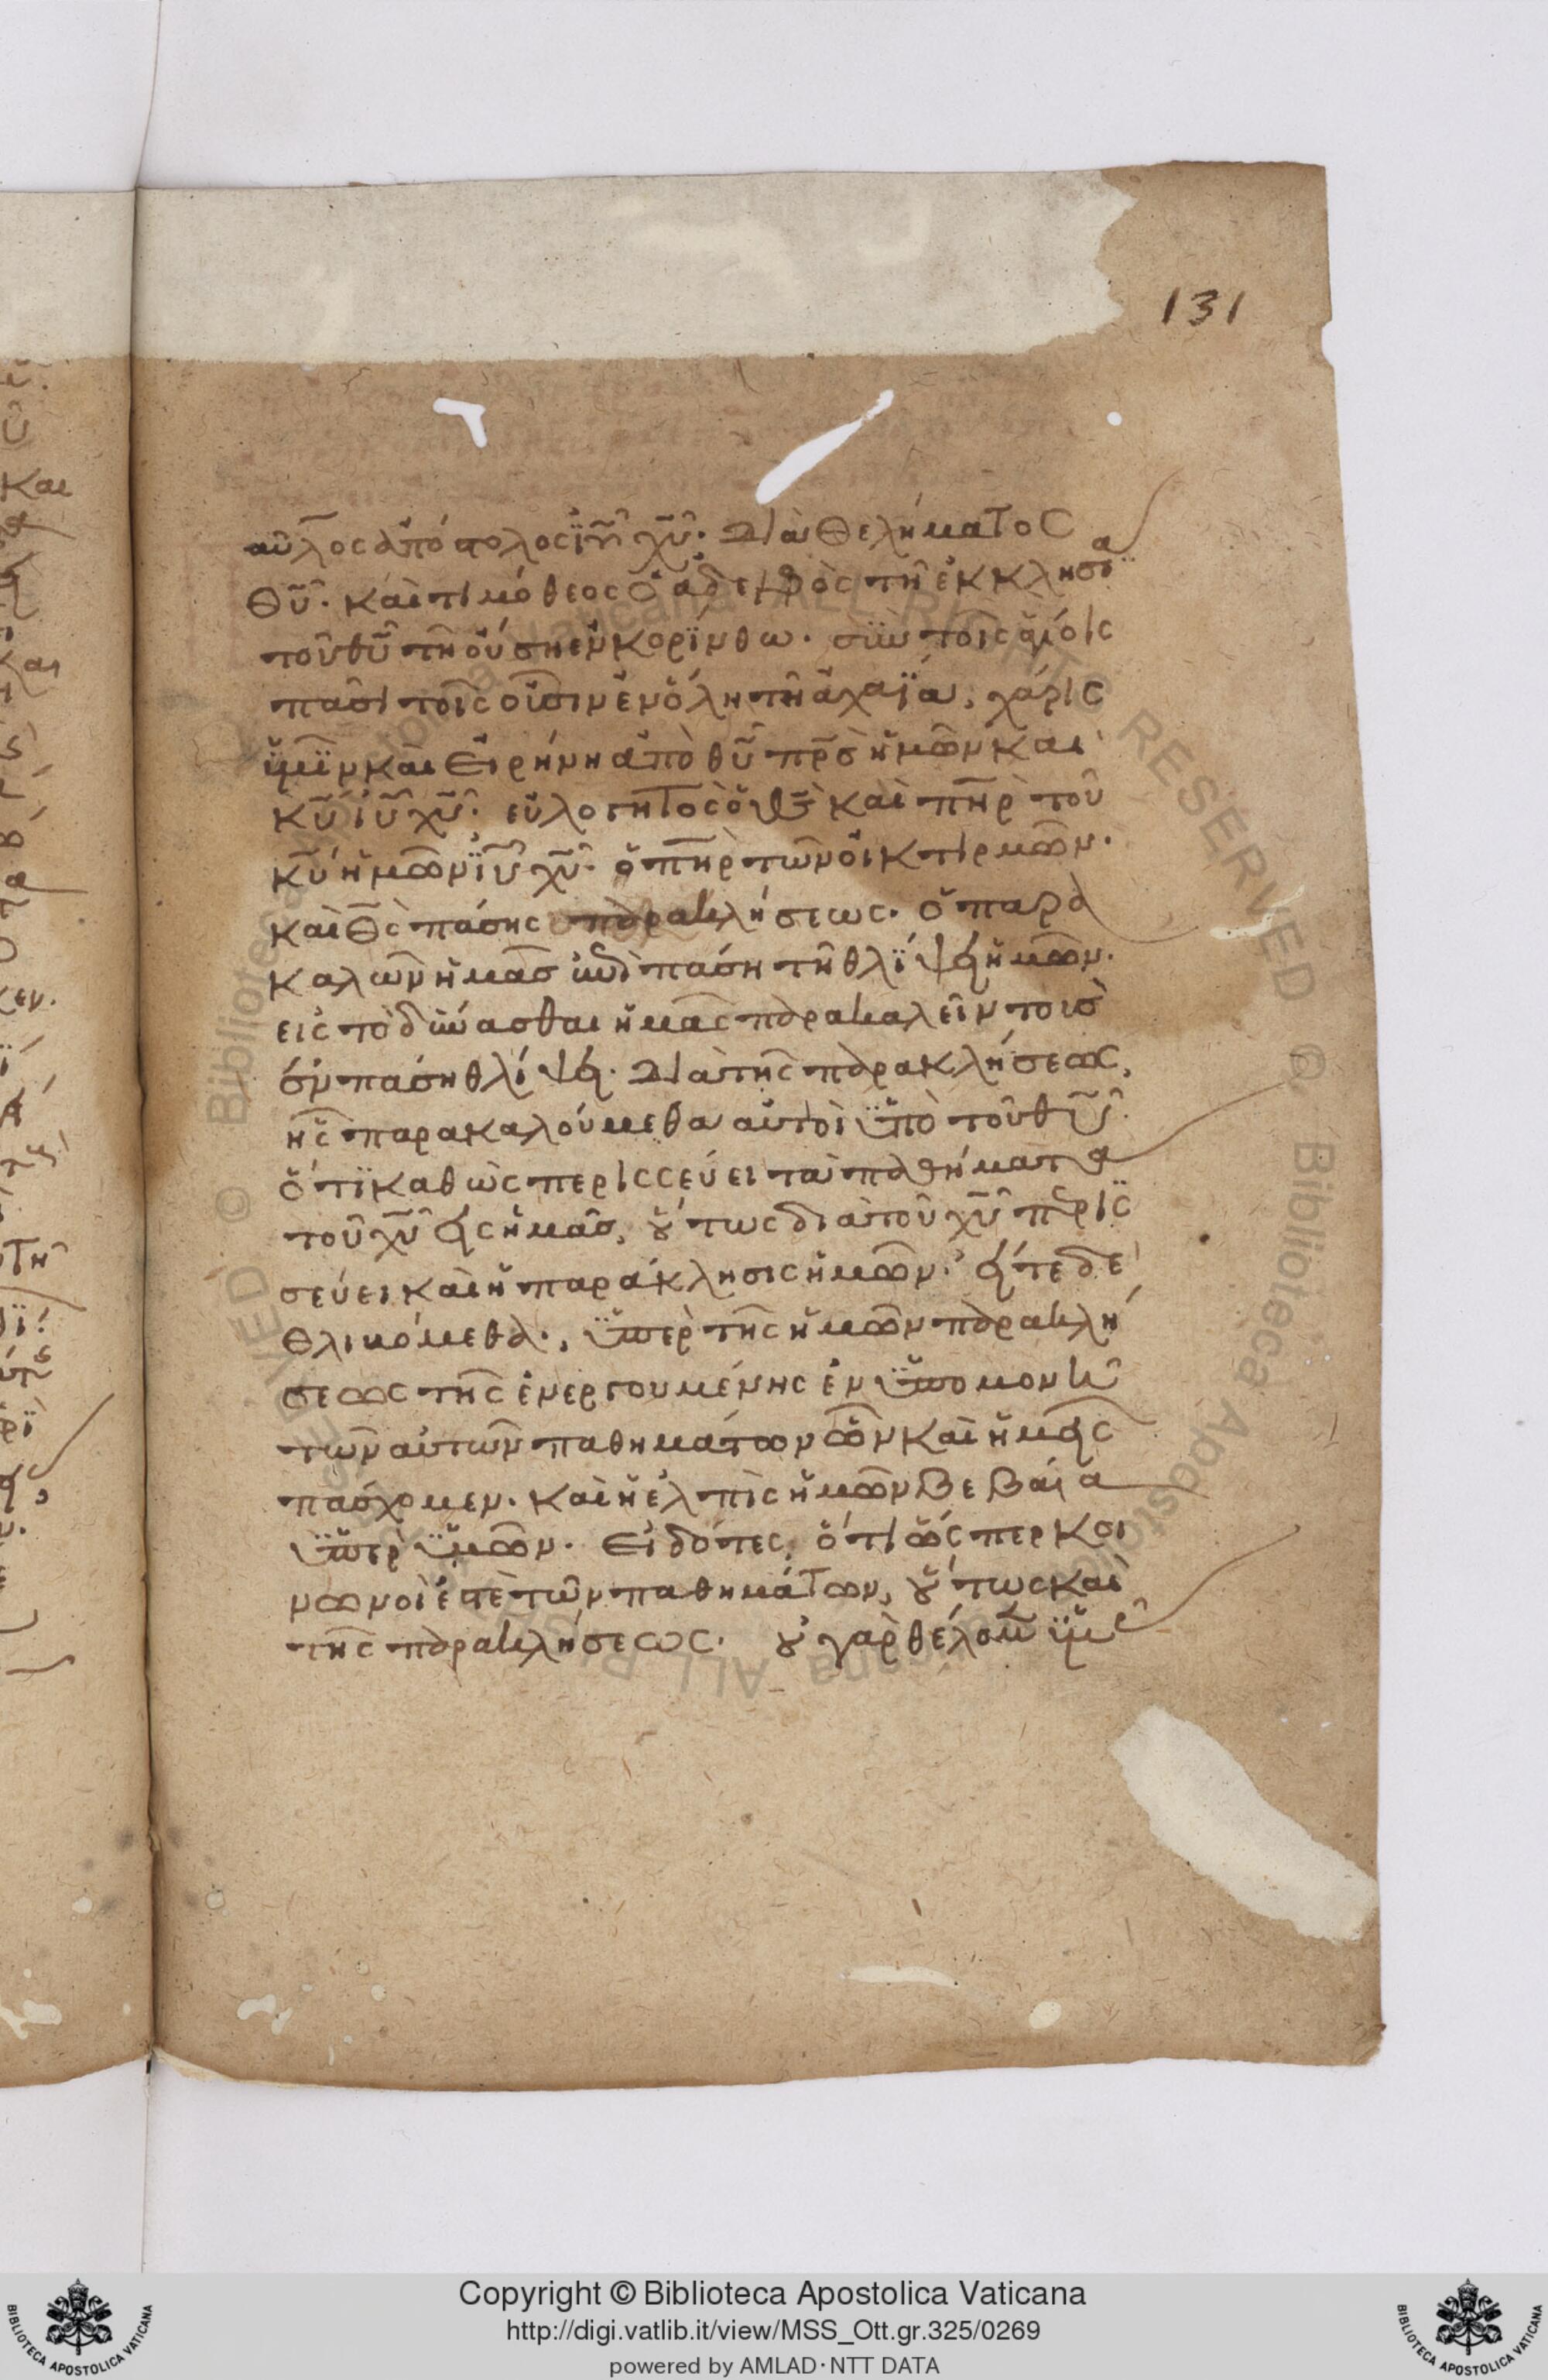 131
αῦλος ἀπόστολος ἰῦ χῦ· διὰ θελήματος
θῦ· καὶ τιμόθεος ὁ ἀδελφὸς τῆ ἐκκλησία
τοῦ θῦ τῆ οὔση ἐν κορίνθω· σὺν τοῖς ἁγίοις
πᾶσι τοῖς οὖσιν ἐν ὅλη τῆ ἀχαΐα, χάρις
ὑμῖν καὶ εἰρήνη ἀπὸ θῦ πρσ ἡμῶν καὶ
κῦ ἰῦ χῦ· εὐλογητὸς ὁ θς καὶ πηρ τοῦ
κῦ ἡμῶν ἰῦ χῦ· ὁ πηρ τῶν οἰκτιρμῶν·
καὶ θς πάσης παρακλήσεως· ὁ παρα
καλῶν ἡμᾶσ ἐπὶ πάση τῆ θλίψει ἡμῶν·
εἰς τὸ δύνασθαι ἡμᾶς παρακαλεῖν τοὺσ
ἐν πάση θλίψει· διὰ τῆς παρακλήσεως,
ἧς παρακαλούμεθα αὐτοὶ ὑπὸ τοῦ θῦ·
ὅτι καθὼς περισσεύει τὰ παθήματα
τοῦ χῦ εἰς ἡμᾶσ, οὕτως διὰ τοῦ χῦ περισ
σεύει καὶ ἡ παράκλησις ἡμῶν· εἴτε δὲ
θλιβόμεθα·, ὑπὲρ τῆς ἡμῶν παρακλή
σεως τῆς ἐνεργουμένης ἐν ὑπομονῆ
τῶν αὐτῶν παθημάτων ὧν καὶ ἡμεῖς
πάσχομεν· καὶ ἡ ἐλπὶς ἡμῶν βεβαία
ὑπὲρ ὑμῶν· εἰδότες, ὅτι ὥσπερ κοι
νωνοί ἐστε τῶν παθημάτων, οὕτως καὶ
τῆς παρακλήσεως· οὐ γὰρ θέλομεν ὑμᾶς
Copyright © Biblioteca Apostolica Vaticana
http://digi.vatlib.it/view/MSS_Ott.gr.325/0269
powered by AMLAD·NTT DATA